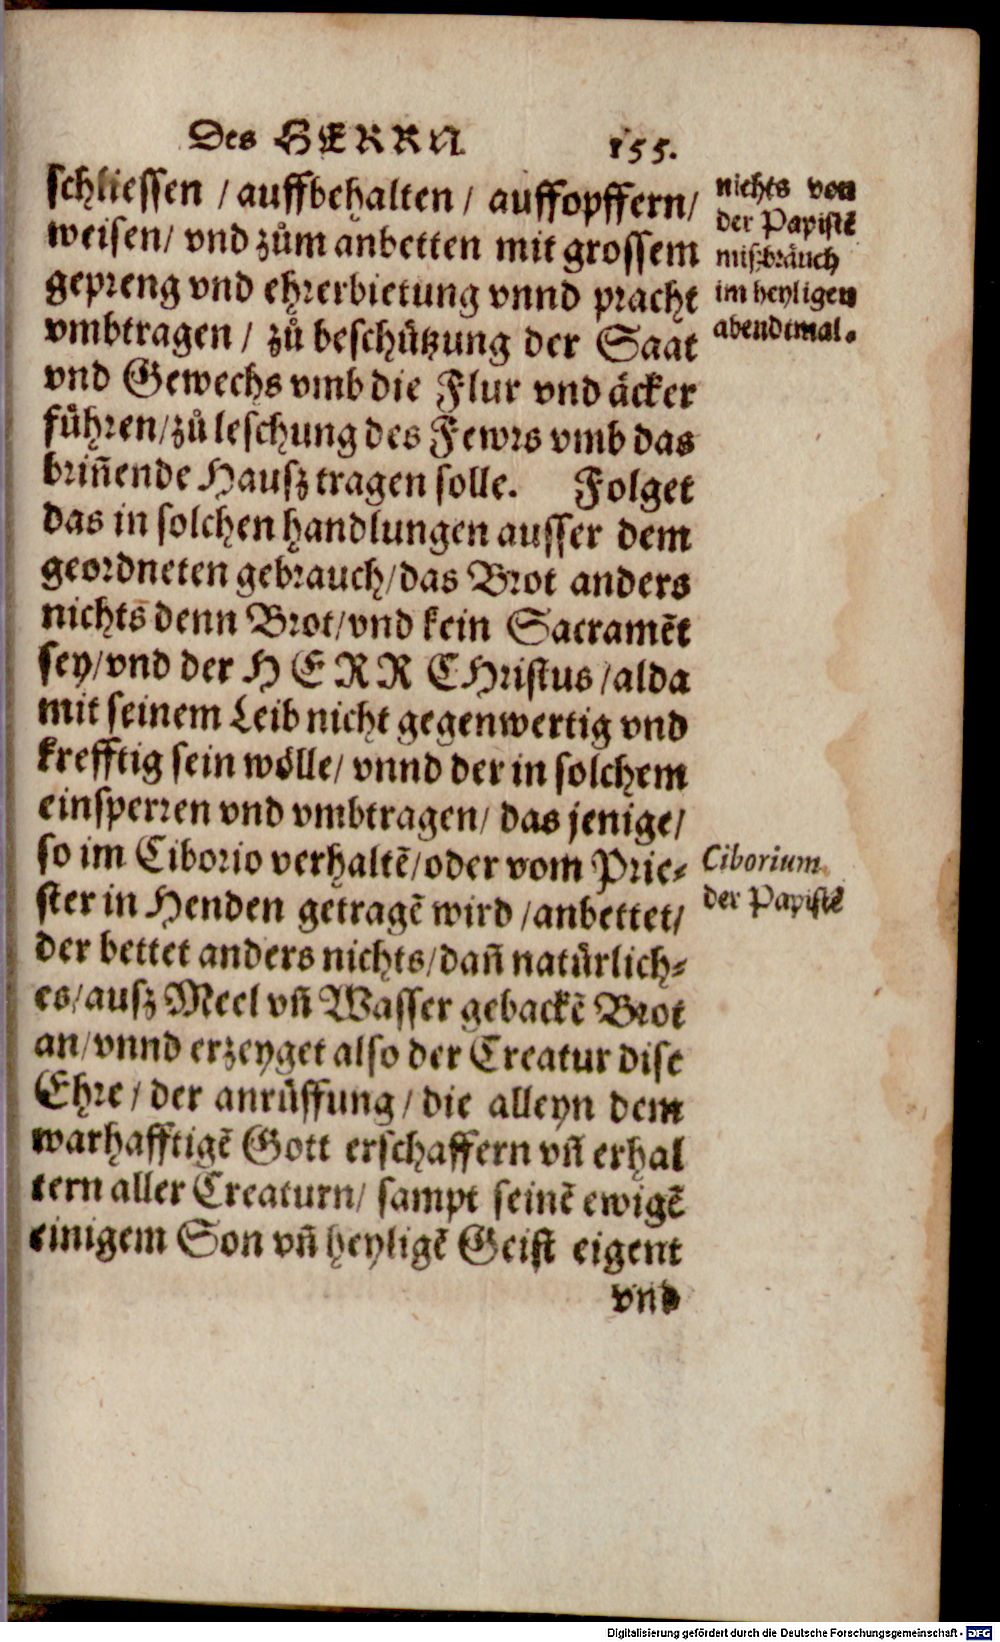 Des HERRN. 155.
schliessen / auffbehalten / auffopffern /
weisen / vnd zům anbetten mit grossem
gepreng vnd ehrerbietung vnnd pracht
vmbtragen / zů beschützung der Saat
vnd Gewechs vmb die Flur vnd äcker
führen / zů leschung des Fewrs vmb das
brin̄ende Hausz tragen solle. Folget
das in solchen handlungen ausser dem
geordneten gebrauch / das Brot anders
nichts denn Brot / vnd kein Sacramēt
sey / vnd der HERR CHristus / alda
mit seinem Leib nicht gegenwertig vnd
krefftig sein wölle / vnnd der in solchem
einsperren vnd vmbtragen / das jenige /
so im Ciborio verhaltē / oder vom Prie-
ster in Henden getragē wird / anbettet /
der bettet anders nichts / dan̄ natürlich-
es / ausz Meel vn̄ Wasser gebackē Brot
an / vnnd erzeyget also der Creatur dise
Ehre / der anrüffung / die alleyn dem
warhafftigē Gott erschaffern vn̄ erhal
tern aller Creaturn / sampt seinē ewigē
einigem Son vn̄ heyligē Geist eigent
vnd
nichts von
der Papistē
miszbräuch
im heyligen
abendtmal.
Ciborium
der Papistē
Digitalisierung gefördert durch die Deutsche Forschungsgemeinschaft - DFG